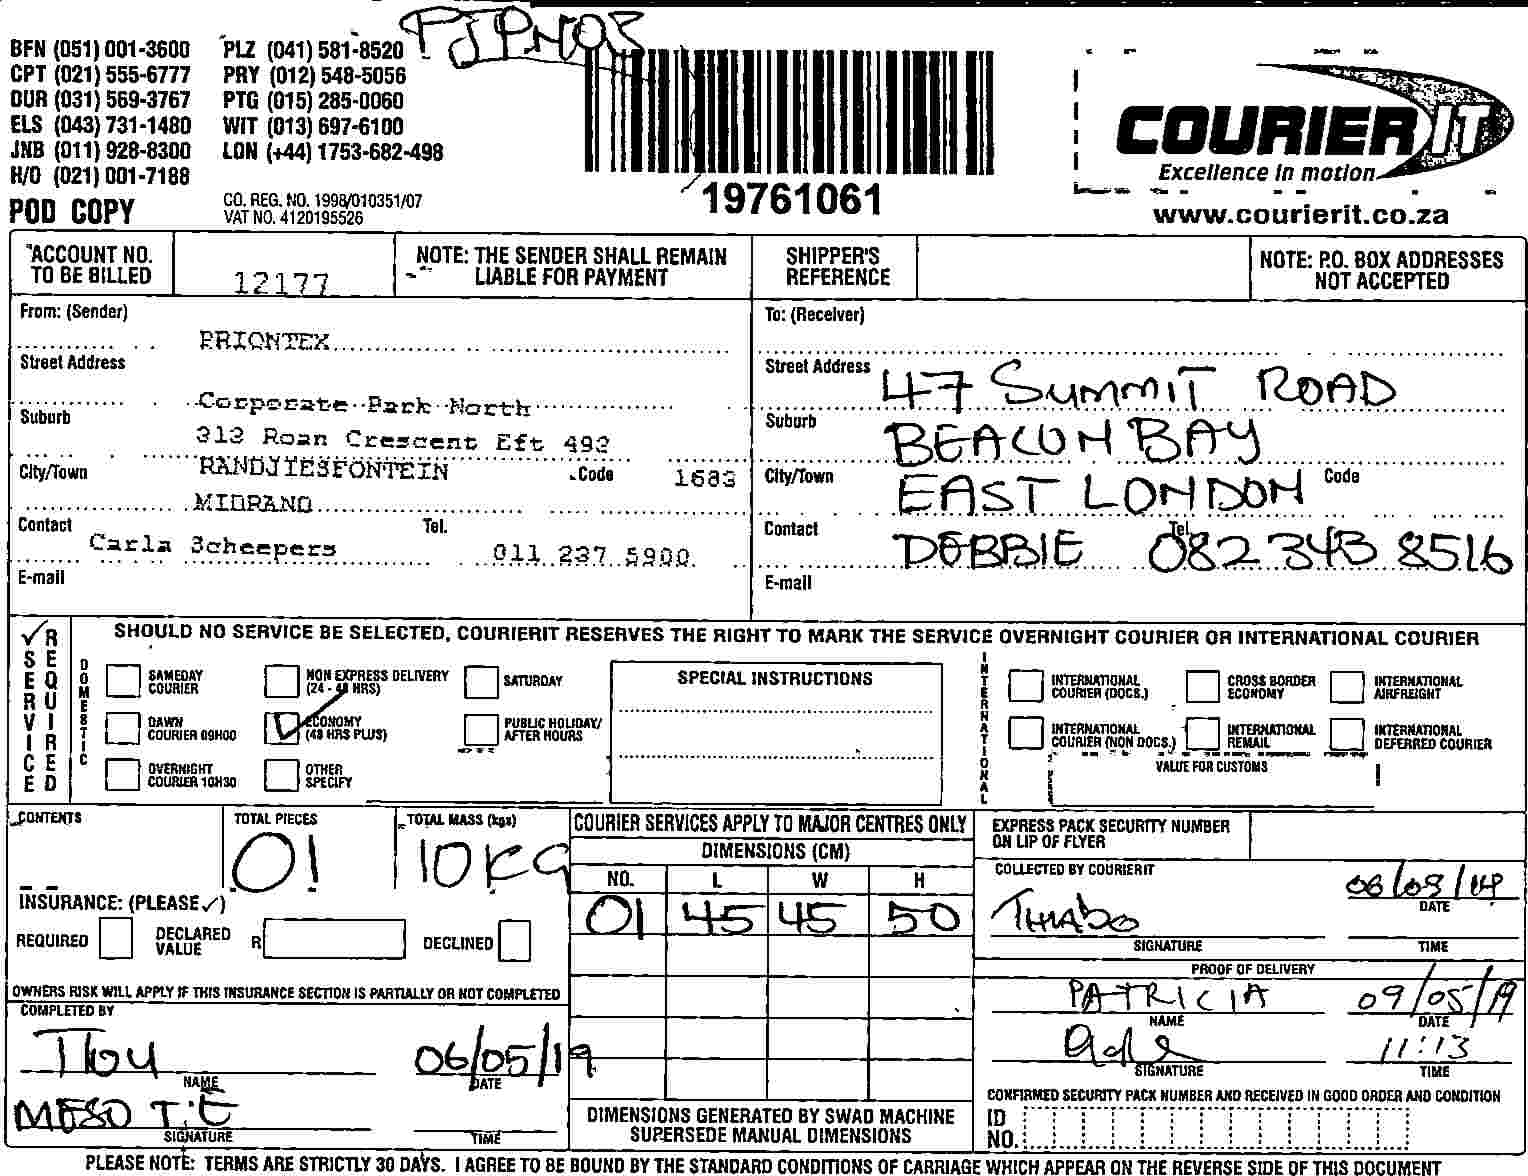 PJPN03
BFN (051) 001-3600 PLZ (041) 581-8520
CPT (021) 555-6777 PRY (012) 548-5056
DUR (031) 569-3767 PTG (015) 285-0060
ELS (043) 731-1480 WIT (013) 697-6100
JNB (011) 928-8300 LON (+44) 1753-682-498
H/O (021) 001-7188
POD COPY
CO. REG. NO. 1998/010351/07
VAT NO. 4120195526
19761061
COURIER IT
Excellence in motion
www.courierit.co.za
ACCOUNT NO. TO BE BILLED 12177
NOTE: THE SENDER SHALL REMAIN LIABLE FOR PAYMENT
SHIPPER'S REFERENCE
NOTE: P.O. BOX ADDRESSES NOT ACCEPTED
From: (Sender)
PRIONTEX
Street Address
Corporate Park North
Suburb
312 Roan Crescent Eft 492
City/Town RANDJIESFONTEIN Code 1683
MIDRAND
Contact Carla Scheepers Tel. 011 237 5900
E-mail
To: (Receiver)
Street Address 47 SUMMIT ROAD
Suburb BEACON BAY
City/Town EAST LONDON Code
Contact DEBBIE Tel. 082 343 8516
E-mail
SERVICE REQUIRED
SHOULD NO SERVICE BE SELECTED, COURIERIT RESERVES THE RIGHT TO MARK THE SERVICE OVERNIGHT COURIER OR INTERNATIONAL COURIER
DOMESTIC
SAMEDAY COURIER
NON EXPRESS DELIVERY (24 - 48 HRS)
SATURDAY
DAWN COURIER 09H00
ECONOMY (48 HRS PLUS)
PUBLIC HOLIDAY/ AFTER HOURS
OVERNIGHT COURIER 10H30
OTHER SPECIFY
SPECIAL INSTRUCTIONS
INTERNATIONAL
INTERNATIONAL COURIER (DOCS.)
CROSS BORDER ECONOMY
INTERNATIONAL AIRFREIGHT
INTERNATIONAL COURIER (NON DOCS.)
INTERNATIONAL REMAIL
INTERNATIONAL DEFERRED COURIER
VALUE FOR CUSTOMS
CONTENTS
TOTAL PIECES 01
TOTAL MASS (kgs) 10KG
INSURANCE: (PLEASE ✓)
REQUIRED
DECLARED VALUE R
DECLINED
OWNERS RISK WILL APPLY IF THIS INSURANCE SECTION IS PARTIALLY OR NOT COMPLETED
COMPLETED BY
06/05/19
NAME DATE
MESO T.E
SIGNATURE TIME
COURIER SERVICES APPLY TO MAJOR CENTRES ONLY
DIMENSIONS (CM)
NO. L W H
01 45 45 50
DIMENSIONS GENERATED BY SWAD MACHINE
SUPERSEDE MANUAL DIMENSIONS
EXPRESS PACK SECURITY NUMBER
ON LIP OF FLYER
COLLECTED BY COURIERIT
THABO
SIGNATURE DATE
TIME
PROOF OF DELIVERY
PATRICIA 09/05/19
NAME DATE
11:13
SIGNATURE TIME
CONFIRMED SECURITY PACK NUMBER AND RECEIVED IN GOOD ORDER AND CONDITION
ID NO.
PLEASE NOTE: TERMS ARE STRICTLY 30 DAYS. I AGREE TO BE BOUND BY THE STANDARD CONDITIONS OF CARRIAGE WHICH APPEAR ON THE REVERSE SIDE OF THIS DOCUMENT